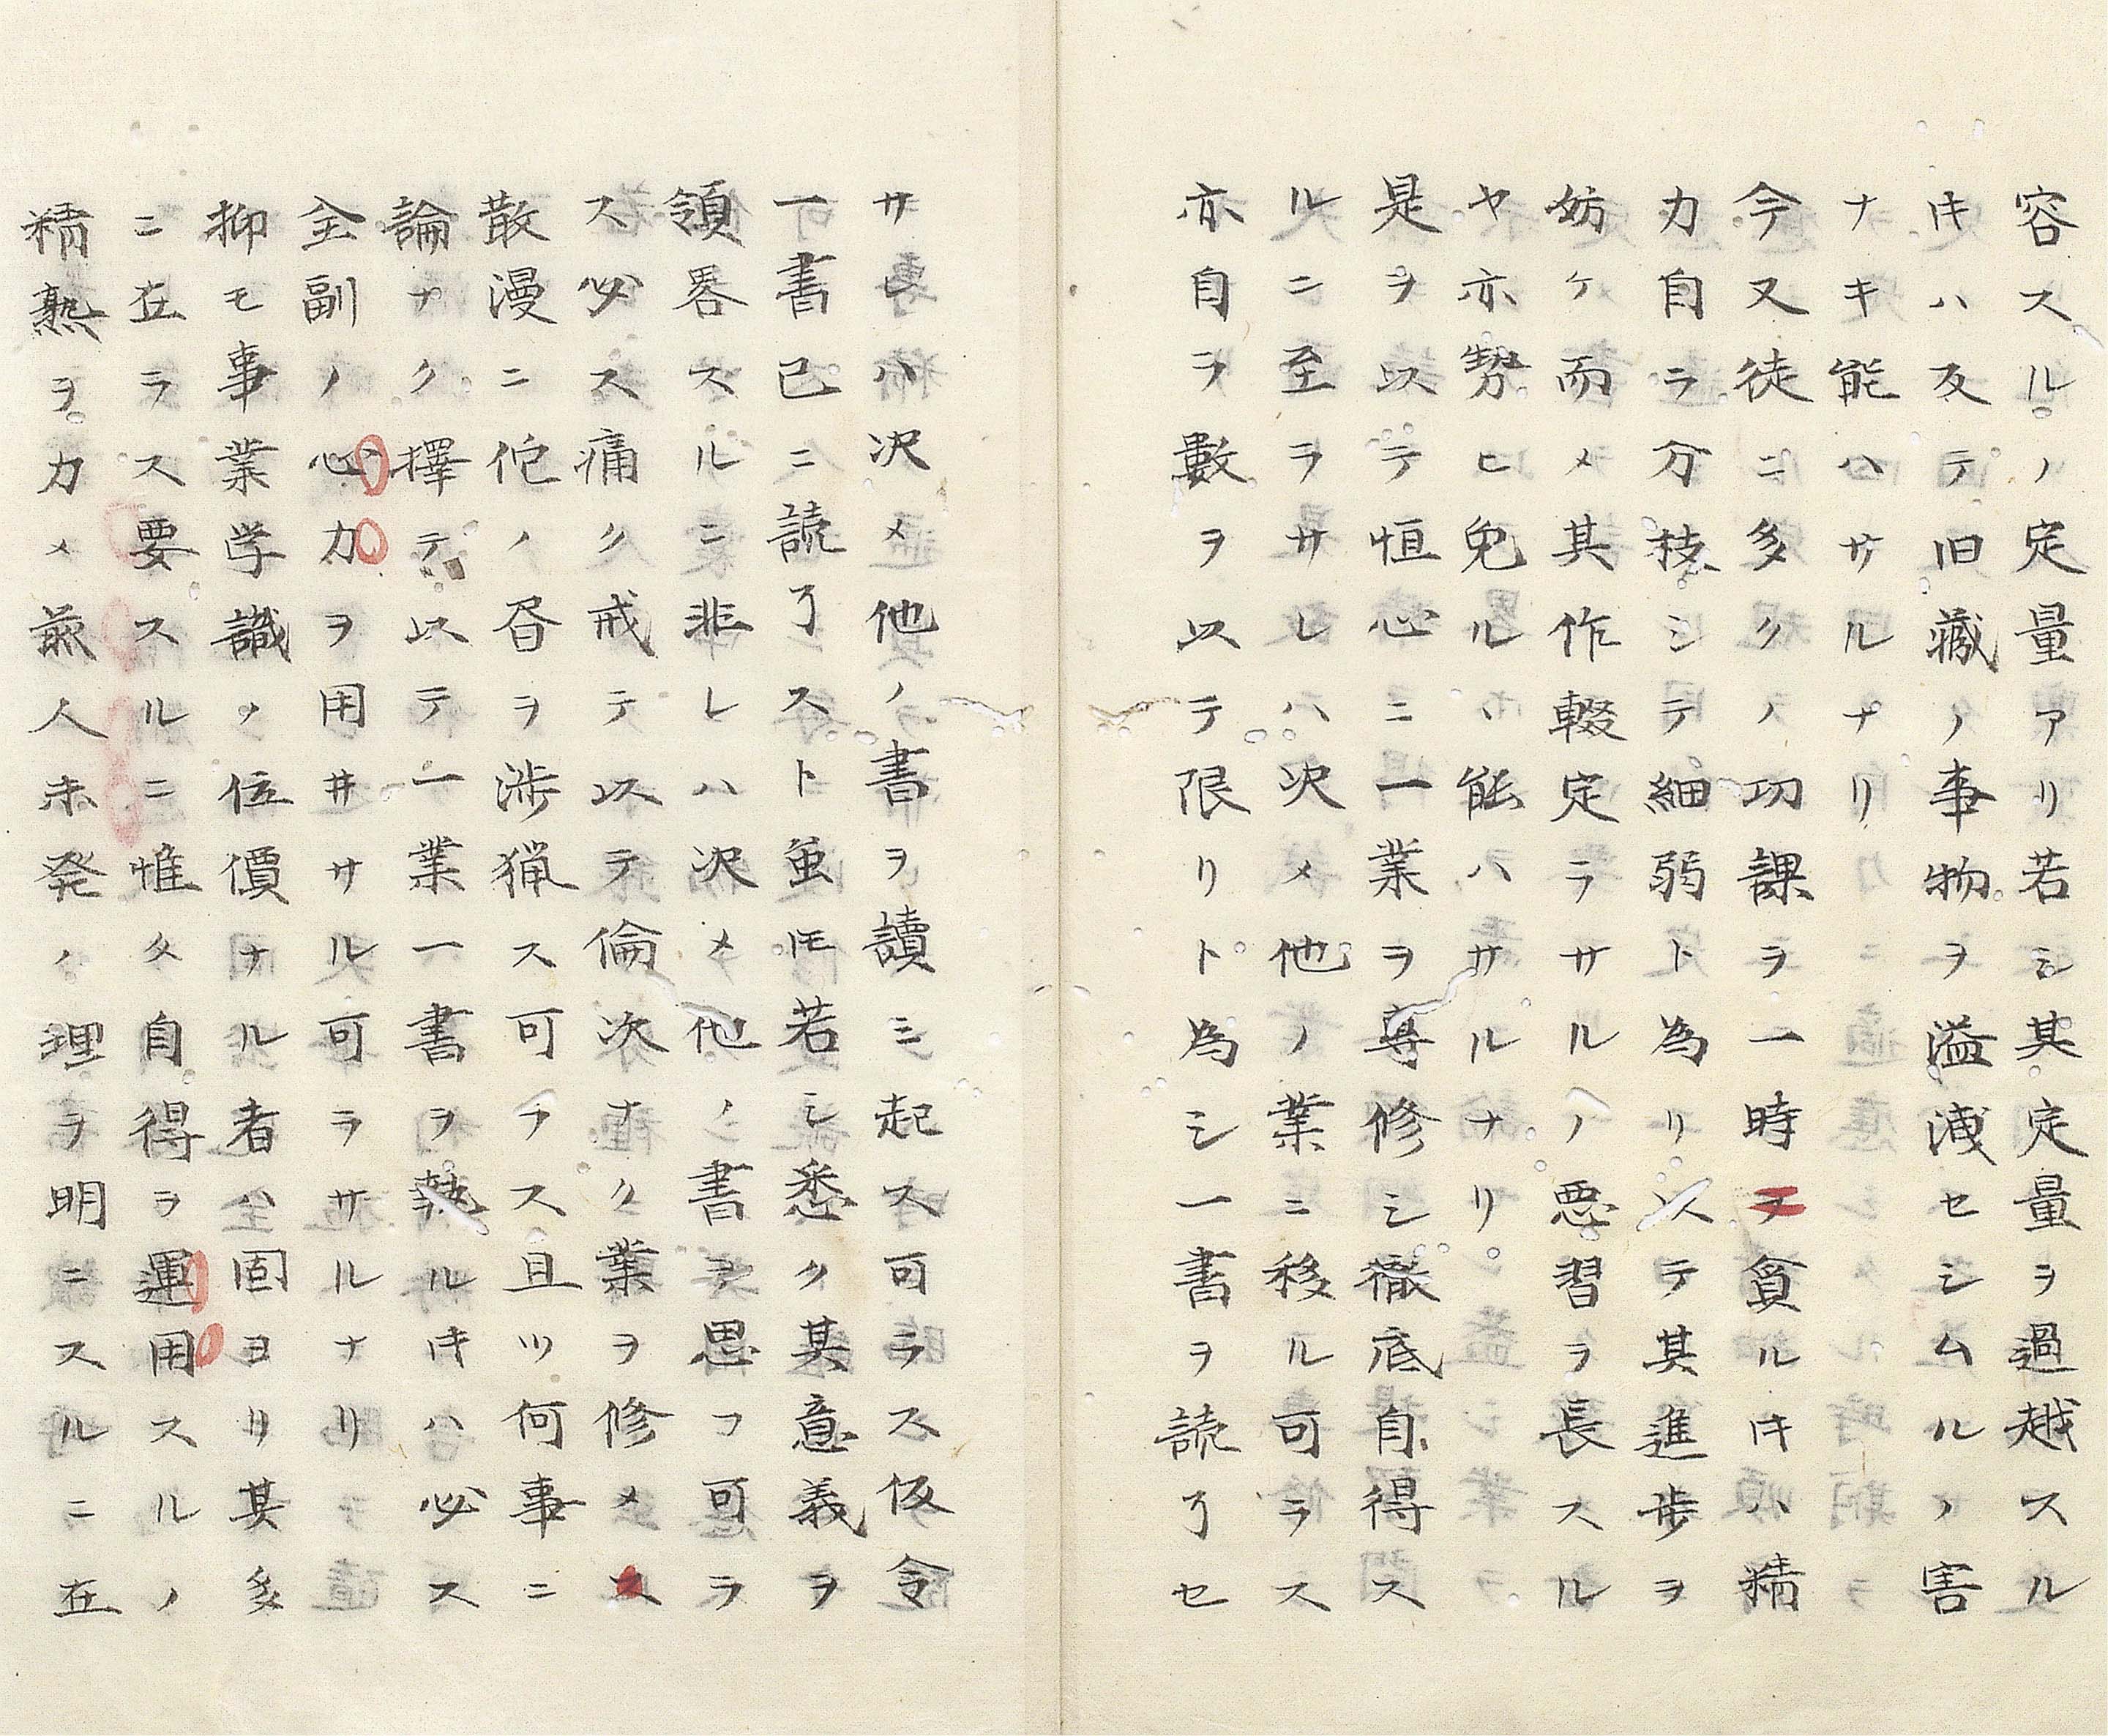 容スルノ定量アリ若シ其定量ヲ過越スル
ㇳキハ反テ旧藏ノ事物ヲ溢洩セシムルノ害
ナキ能ハサルナリ
今又徒ニ多クノ功課ヲ一時ヲ貪ルㇳキハ精
力自ラ分枝シテ細弱ト為リ以テ其進歩ヲ
妨ケ而メ其作輟定ラサルノ悪習ヲ長スル
ヤ亦勢ヒ免ルヽ能ハサルナリ
是ヲ以テ恒心ニ一業ヲ専修シ徹底自得ス
ルニ至ヲサレハ次メ他ノ業ニ移ル可ラス
亦自ヲ數ヲ以テ限リト為シ一書ヲ読了セ
サレハ决メ他ノ書ヲ讀ミ起ス可ラス仮令
一書已ニ読了スト虽𪜈若シ悉ク其意義ヲ
領畧スルニ非レハ决メ他ノ書ヲ思フ可ラ
ス必ス痛ク戒テ以テ倫次ナク業ヲ修メス
散漫ニ佗ノ昏ヲ渉猟ス可ラス且ツ何事ニ
論ナク擇テ以テ一業一書ヲ執ルㇳキハ必ス
全副ノ心力ヲ用井サル可ラサルナリ
抑モ事業学識ノ位價ナル者ハ固ヨリ其多
ニ在ラス要スルニ惟タ自得ヲ運用スルノ
精熟ヲカメ前人未発ノ理ヲ明ニスルニ在